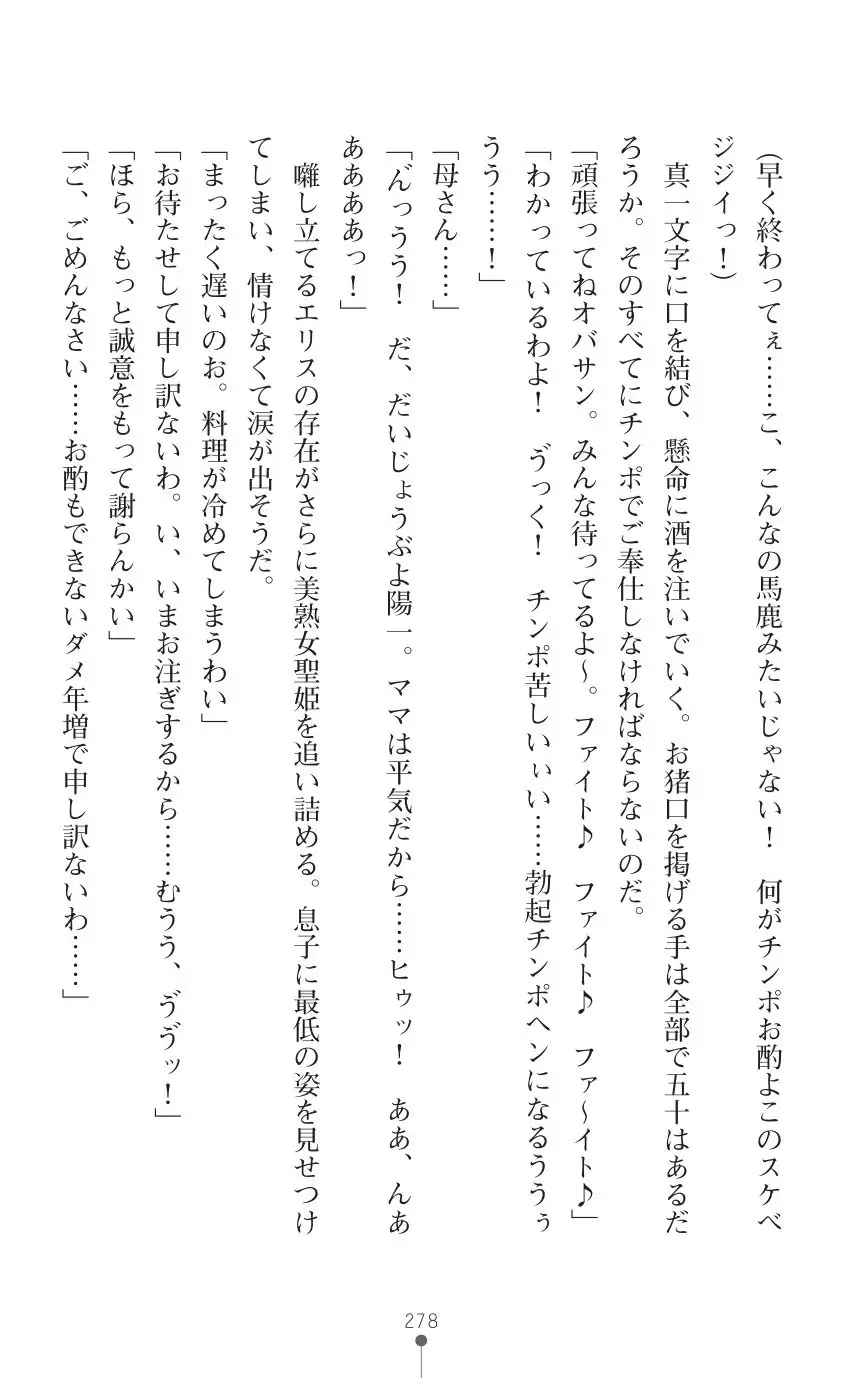 （早く終わってぇ……こ、こんなの馬鹿みたいじゃない！　何がチンポお酌よこのスケベ
ジジイっ！）
　真一文字に口を結び、懸命に酒を注いでいく。お猪口を掲げる手は全部で五十はあるだ
ろうか。そのすべてにチンポでご奉仕しなければならないのだ。
「頑張ってねオバサン。みんな待ってるよ～。ファイト♪　ファイト♪　ファ～イト♪」
「わかっているわよ！　ゔっく！　チンポ苦しいぃい……勃起チンポヘンになるううぅ
うう……！」
「母さん……」
「ん゙っうう！　だ、だいじょうぶよ陽一。ママは平気だから……ヒゥッ！　ああ、んあ
ああああっ！」
　囃し立てるエリスの存在がさらに美熟女聖姫を追い詰める。息子に最低の姿を見せつけ
てしまい、情けなくて涙が出そうだ。
「まったく遅いのお。料理が冷めてしまうわい」
「お待たせして申し訳ないわ。い、いまお注ぎするから……むうう、ゔゔッ！」
「ほら、もっと誠意をもって謝らんかい」
「ご、ごめんなさい……お酌もできないダメ年増で申し訳ないわ……」
278